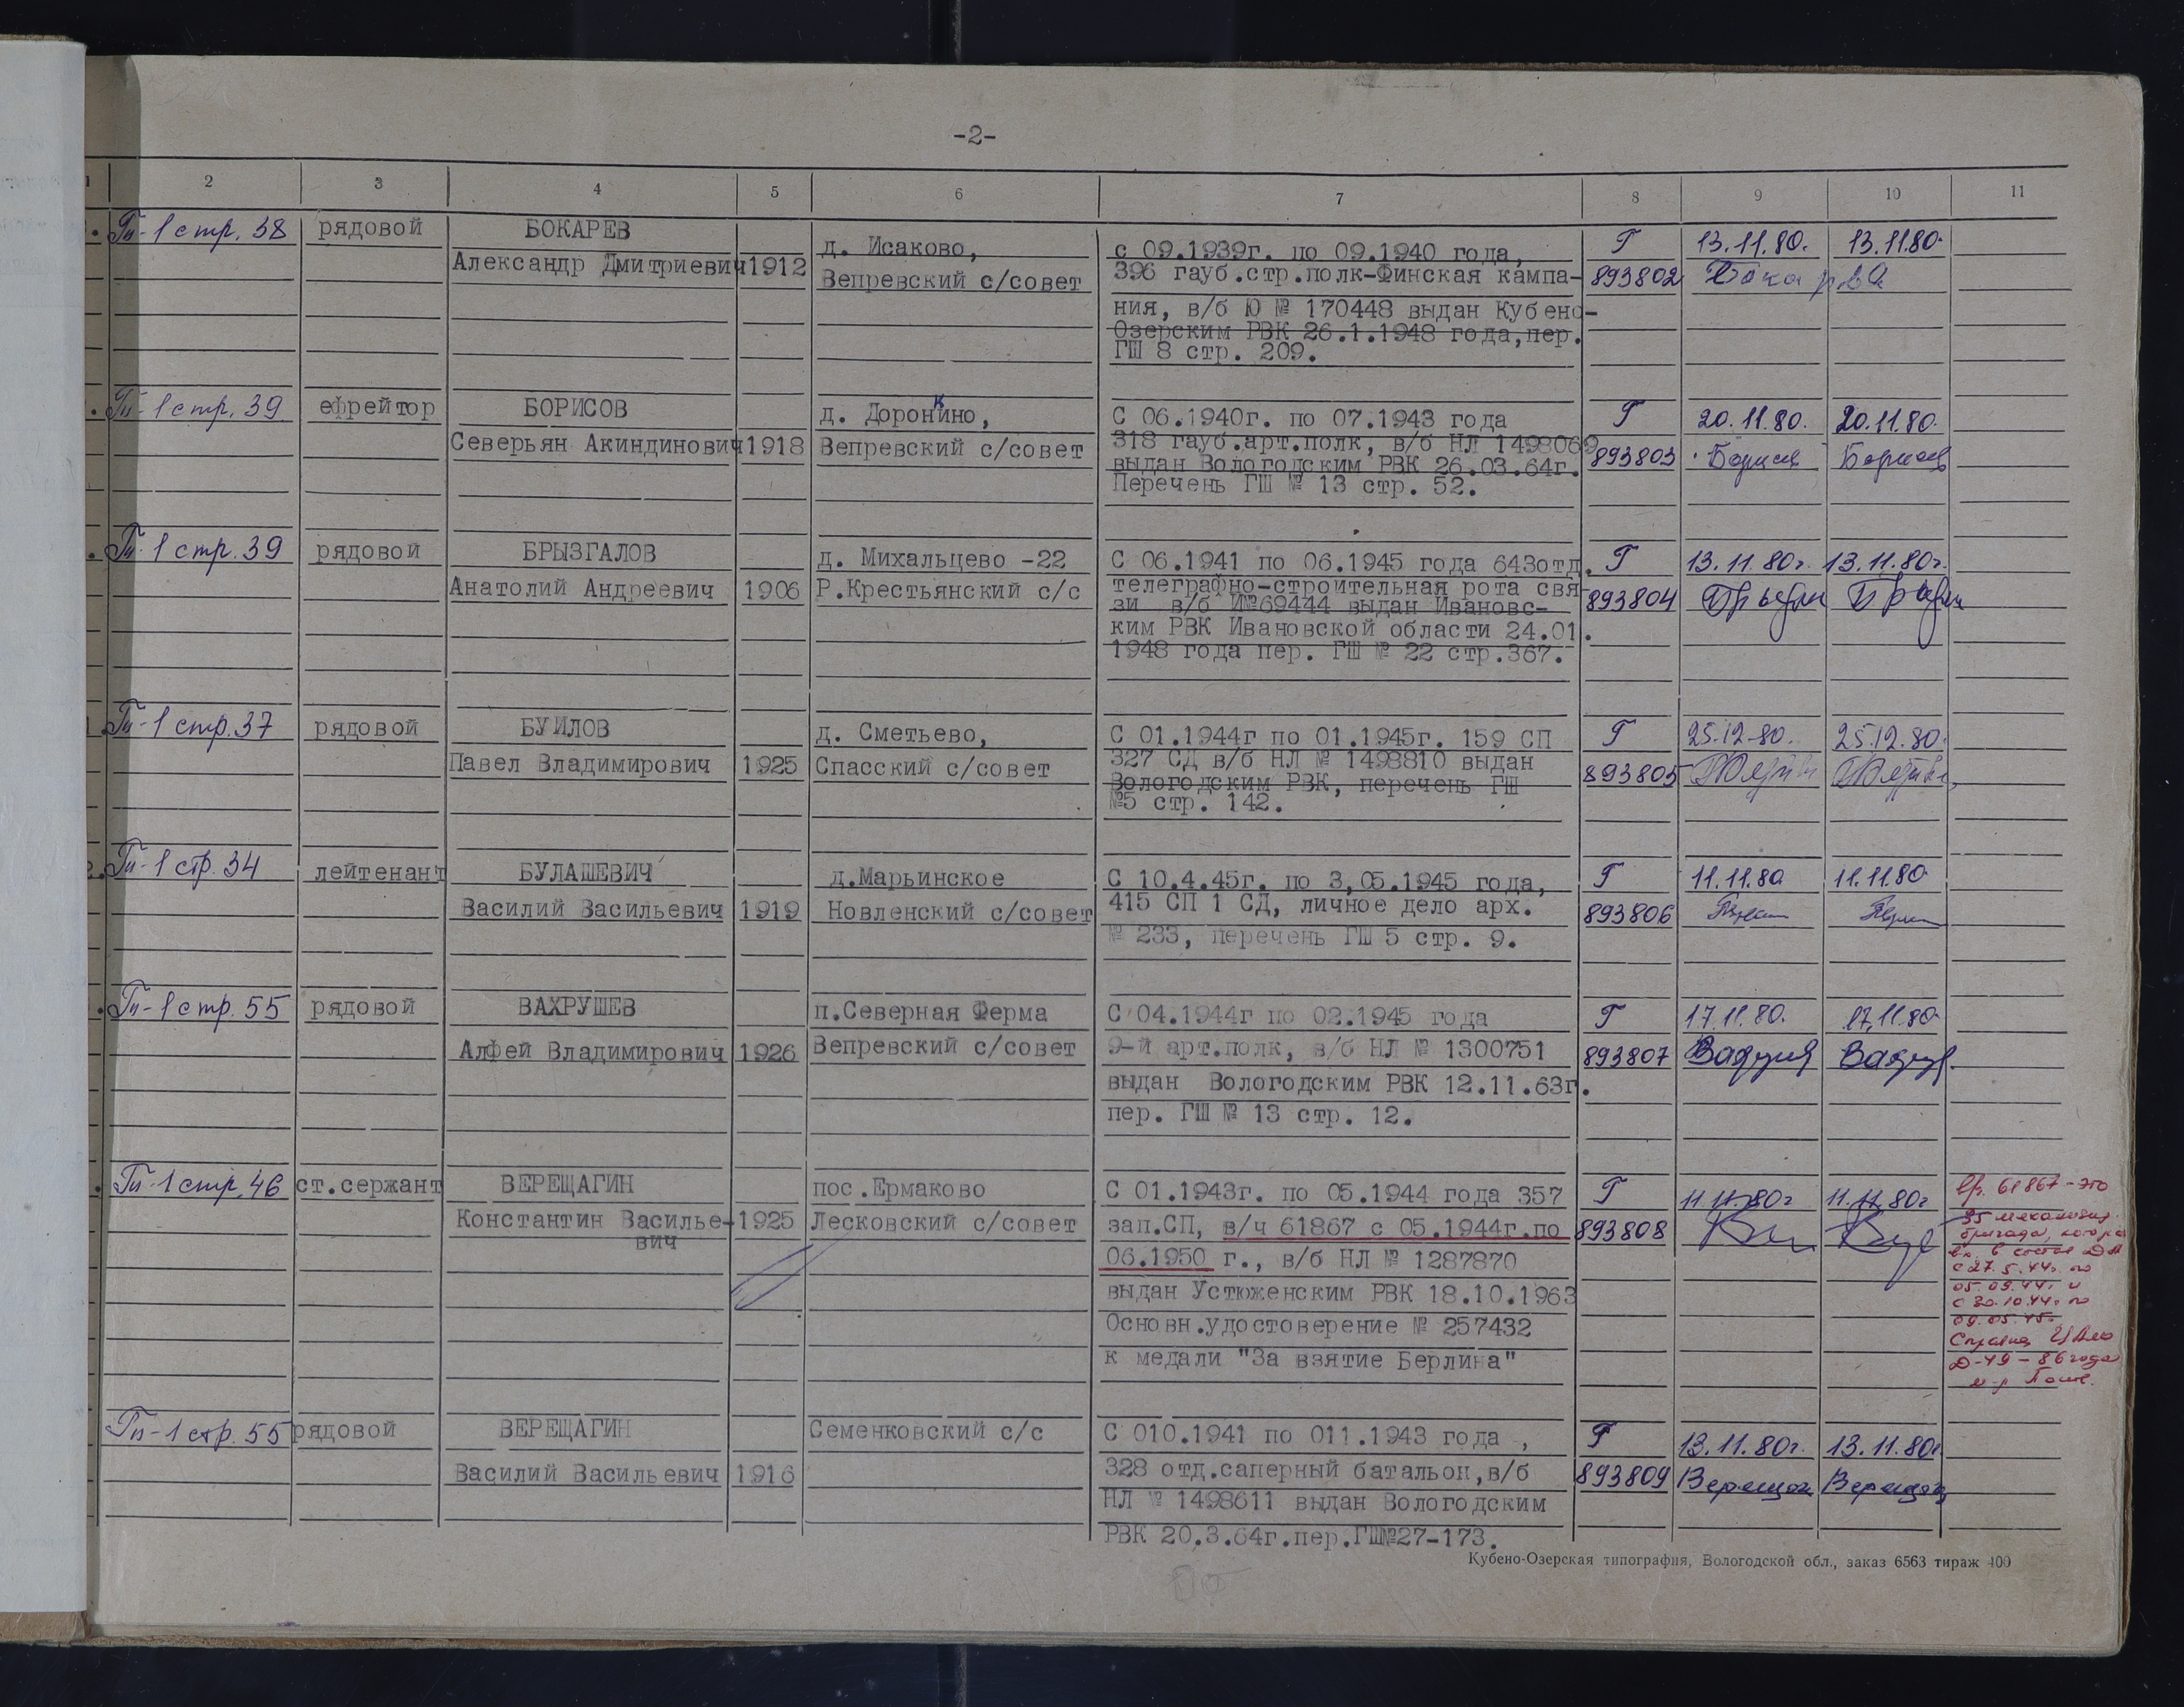 -2-
1 2 3 4 5 6 7 8 9 10 11
Гп-1 стр. 38 рядовой БОКАРЕВ д. Исаково, с 09.1939г. по 09.1940 года, Г 13.11.80. 13.11.80.
Александр Дмитриевич 1912 Вепревский с/совет 396 гауб.стр.полк-Финская кампа- 893802
ния, в/б Ю № 170448 выдан Кубено-
Озерским РВК 26.1.1948 года,пер.
ГШ 8 стр. 209.
Гп-1 стр. 39 ефрейтор БОРИСОВ д. Доронкино, С 06.1940г. по 07.1943 года Г 20.11.80. 20.11.80.
Северьян Акиндинович 1918 Вепревский с/совет 318 гауб.арт.полк, в/б НЛ 1498069 893803 Борисов Борисов
выдан Вологодским РВК 26.03.64г.
Перечень ГШ № 13 стр. 52.
Гп-1 стр. 39 рядовой БРЫЗГАЛОВ д. Михальцево -22 С 06.1941 по 06.1945 года 643отд. Г 13.11.80г. 13.11.80г.
Анатолий Андреевич 1906 Р.Крестьянский с/с телеграфно-строительная рота свя- 893804
зи в/б И№69444 выдан Ивановс-
ким РВК Ивановской области 24.01.
1948 года пер. ГШ № 22 стр.367.
Гп-1 стр. 37 рядовой БУИЛОВ д. Сметьево, С 01.1944г по 01.1945г. 159 СП Г 25.12.80. 25.12.80.
Павел Владимирович 1925 Спасский с/совет 327 СД в/б НЛ № 1498810 выдан 893805
Вологодским РВК, перечень ГШ
№5 стр. 142.
Гп-1 стр. 34 лейтенант БУЛАШЕВИЧ д.Марьинское С 10.4.45г. по 3,05.1945 года, Г 11.11.80 11.11.80
Василий Васильевич 1919 Новленский с/совет 415 СП 1 СД, личное дело арх. 893806
№ 233, перечень ГШ 5 стр. 9.
Гп-1 стр. 55 рядовой ВАХРУШЕВ п.Северная Ферма С 04.1944г по 02.1945 года Г 17.11.80. 17.11.80.
Алфей Владимирович 1926 Вепревский с/совет 9-й арт.полк, в/б НЛ № 1300751 893807
выдан Вологодским РВК 12.11.63г.
пер. ГШ № 13 стр. 12.
Гп-1 стр. 46 ст.сержант ВЕРЕЩАГИН пос.Ермаково С 01.1943г. по 05.1944 года 357 Г 11.11.80г 11.11.80г 61867 - это
Константин Василье- 1925 Лесковский с/совет зап.СП, в/ч 61867 с 05.1944г.по 893808 35 механизир.
вич бригада,
06.1950 г., в/б НЛ № 1287870 в состав ДА
с 27.5.44г. по
выдан Устюженским РВК 18.10.1963 05.09.44г. и
с 30.10.44г. по
Основн.удостоверение № 257432 09.05.45г.
к медали "За взятие Берлина" Д-49 - 86 года
Гп-1 стр. 55 рядовой ВЕРЕЩАГИН Семенковский с/с С 010.1941 по 011.1943 года , Г 13.11.80г. 13.11.80г
Василий Васильевич 1916 328 отд.саперный батальон,в/б 893809 Верещаг Верещаг
НЛ № 1498611 выдан Вологодским
РВК 20.3.64г.пер.ГШ№27-173.
Кубено-Озерская типография, Вологодской обл., заказ 6563 тираж 400